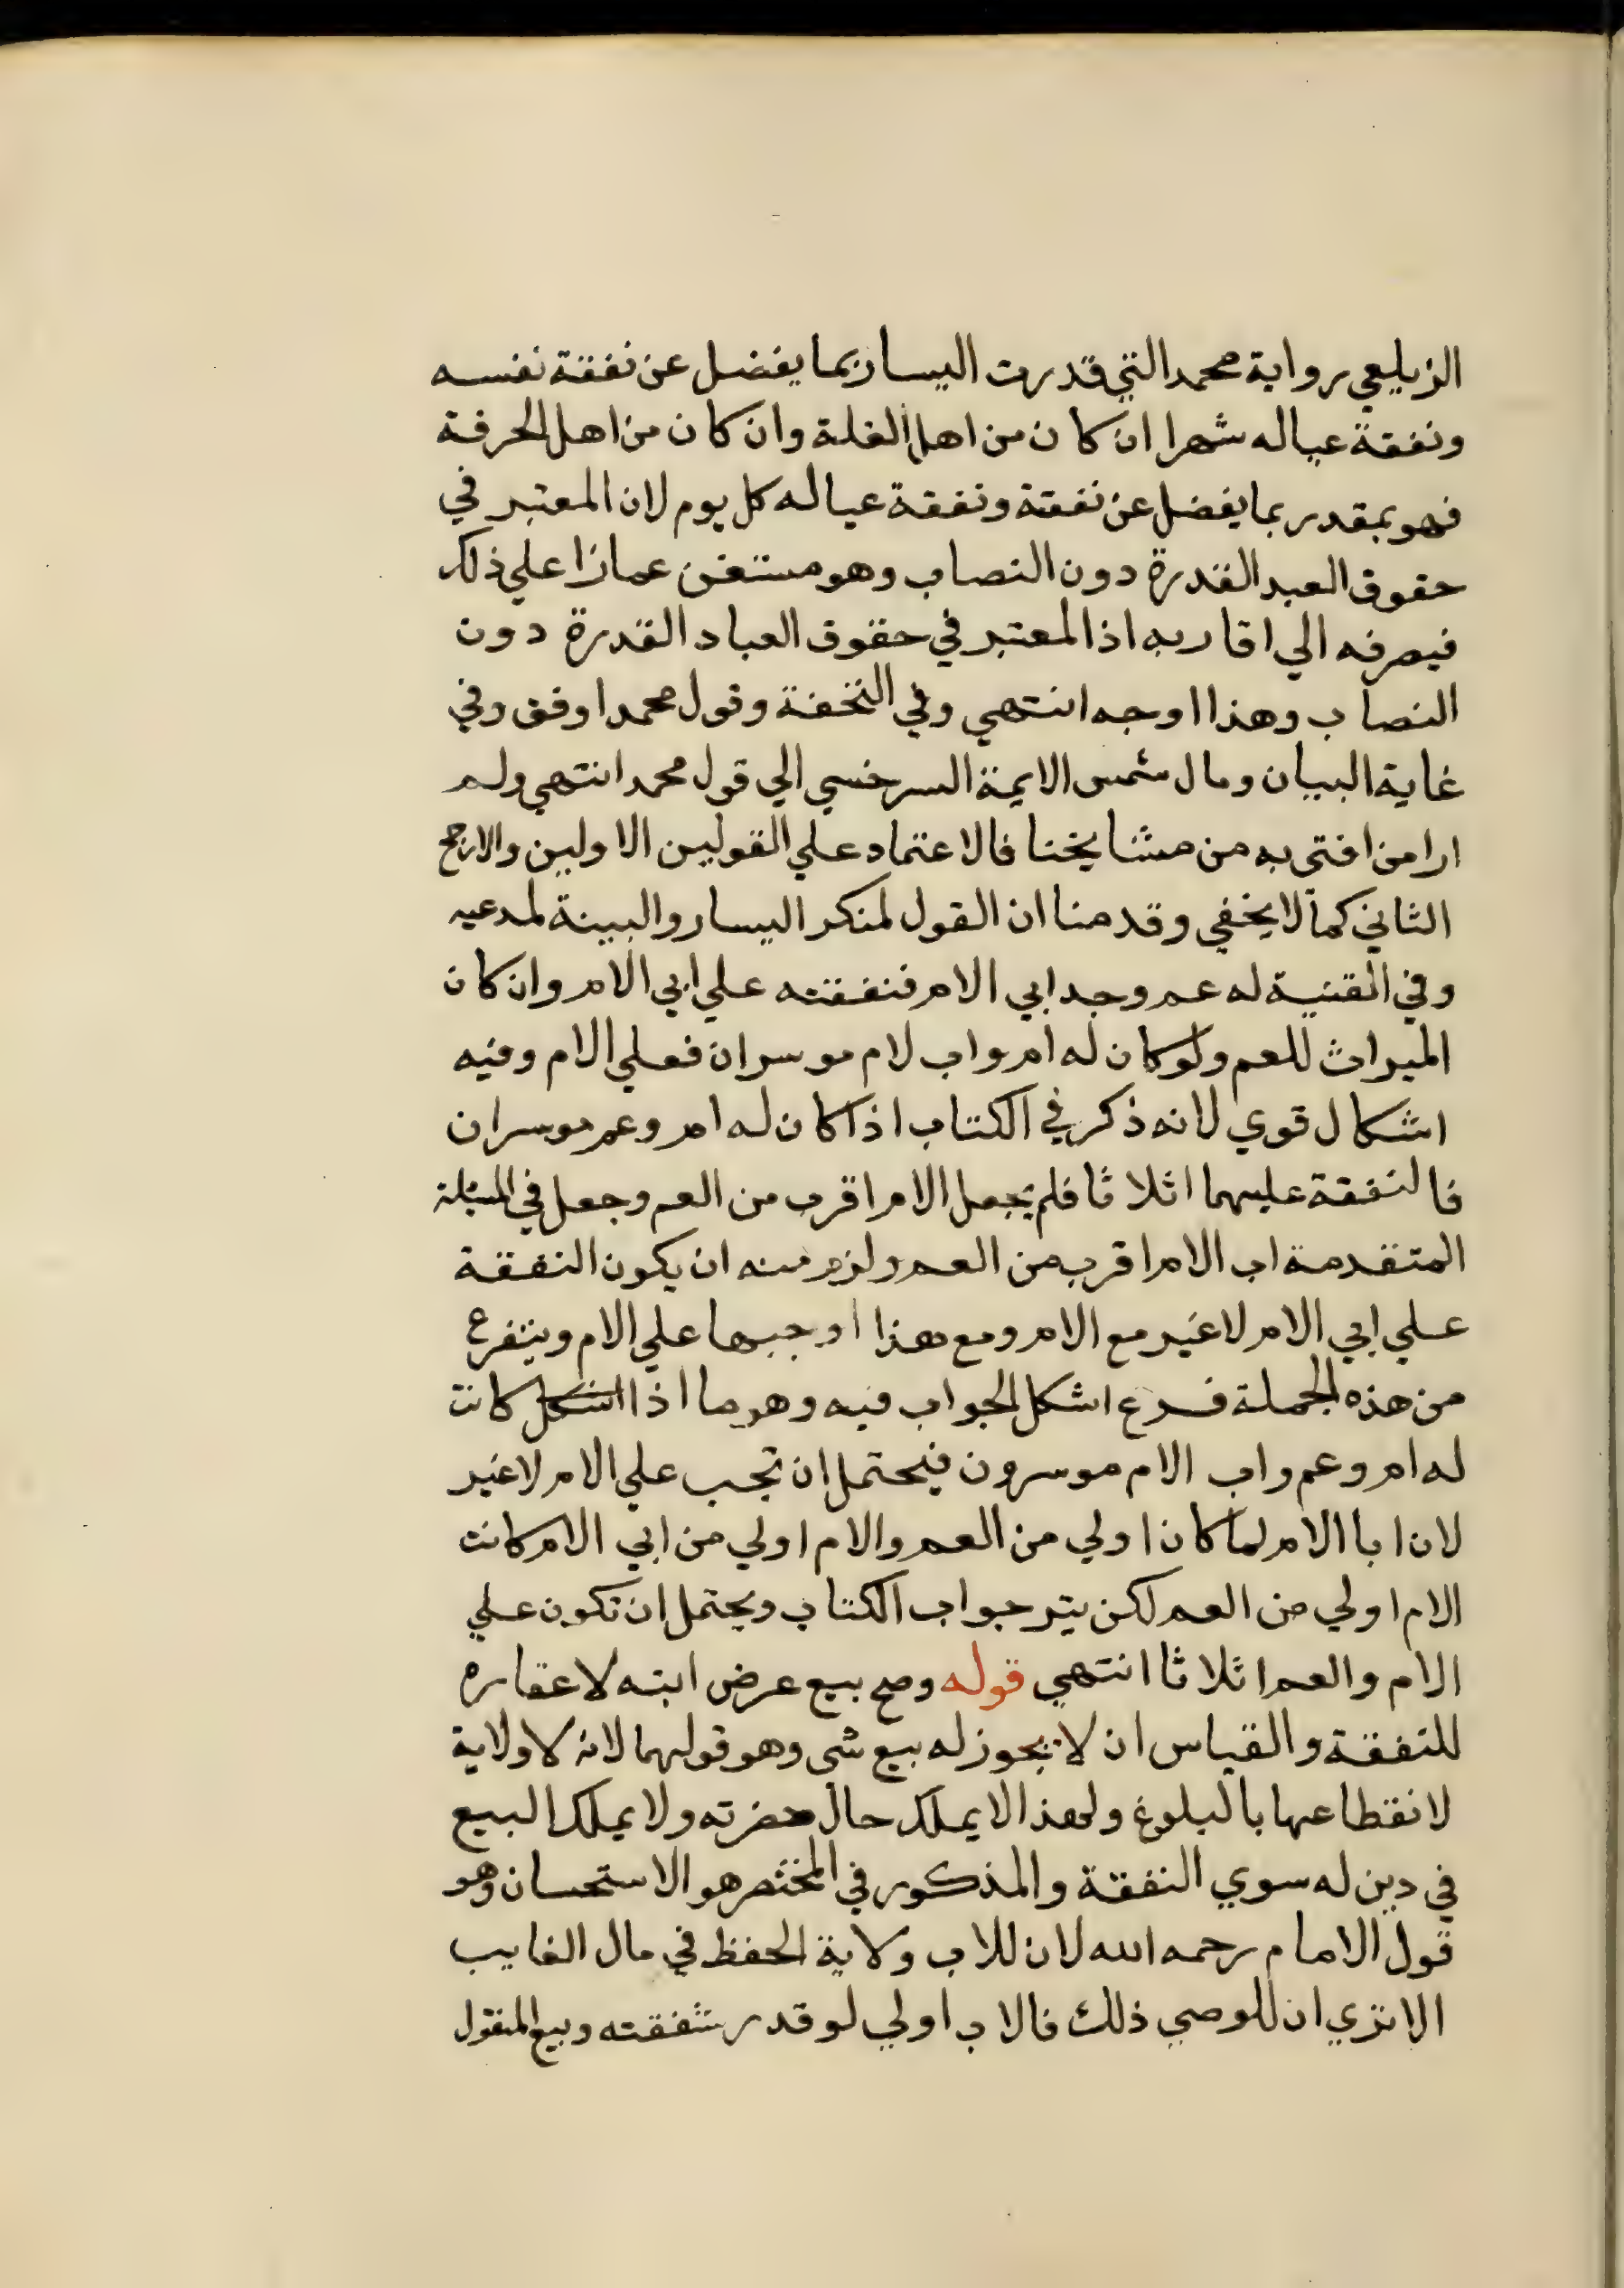 الزيلعي رواية محمد التي قدرت اليسار بما يفضل عن نفقة نفسه
ونفقة عياله شهرا ان كان من اهل الغلة وان كان من اهل الحرفة
فهو بمقدر بما يفضل عن نفقته ونفقة عياله كل يوم لان المعتبر في
حقوق العبد القدرة دون النصاب وهو مستغن عمازا علي ذلك
فيصرفه الي اقاربه اذا لمعتبر في حقوق العباد القدرة دون
النصاب وهذا اوجه انتهي وفي التحفة وقول محمد اوفق وفي
غاية البيان ومال شمس الايمة السرخسي الي قول محمد انتهي ولم
ارا من افتى به من مشايخنا فالاعتماد علي القولين الاولين والارجح
الثاني كما لا يخفي وقدمنا ان القول لمنكر اليسار والبينة لمدعيه
وفي القنية له عم وجد ابي الام فنفقته علي ابي الام وان كان
الميراث للعم ولو كان له ام واب لام موسران فعلي الام وفيه
اشكال قوي لانه ذكر في الكتاب اذا كان له ام وعم موسران
فالنفقة عليهما اثلاثا فلم يجعل الام اقرب من العم وجعل في المسئلة
المتقدمة اب الام اقرب من العم ولزم منه ان يكون النفقة
علي ابي الام لا غير مع الام ومع هذا اوجبها علي الام ويتفرع
من هذه الجملة فرع اشكل الجواب فيه وهو ما اذا اشكل كانت
له ام وعم واب الام موسرون فيحتمل ان تجب علي الام لا غير
لان ابا الام لما كان اولي من العم والام اولي من ابي الام كانت
الام اولي من العم لكن يتر جواب الكتاب ويحتمل ان تكون علي
الام والعم اثلاثا انتهي قوله وصح بيع عرض ابنه لا عقاره
للنفقة والقياس ان لا يجوز له بيع شي وهو قولهما لانه لا ولاية
لانقطاعها بالبلوغ ولهذا لا يملك حال حضرته ولا يملك البيع
في دين له سوي النفقة والمذكور في المختصر هو الاستحسان وهو
قول الامام رحمه الله لان للاب ولاية الحفظ في مال الغايب
الا تري ان للوصي ذلك فالاب اولي لو قدر شفقته وبيع المنقول